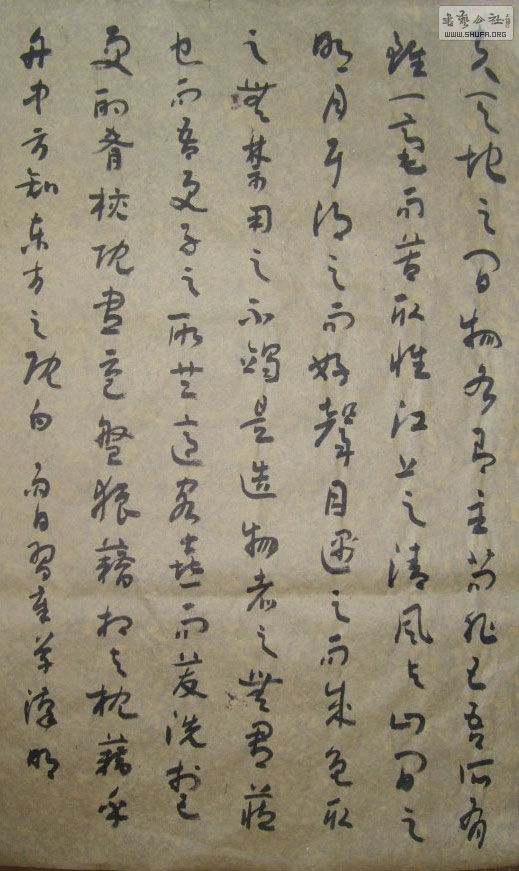 夫天地之間物各有主苟非己吾所有
雖一毫而莫取惟江上之清風與山間之
明月耳得之而好聲目遇之而成色取
之無禁用之不竭是造物者之無盡藏
也而吾與子之所共適客喜而笑洗盞
更酌肴核既盡杯盤狼藉相與枕藉乎
舟中方知東方之既白 雨日習章草
書藝公社
WWW.SHUFA.ORG